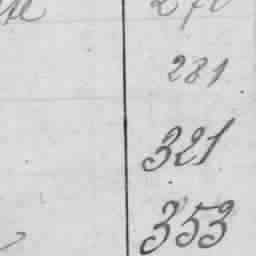 281
321
353